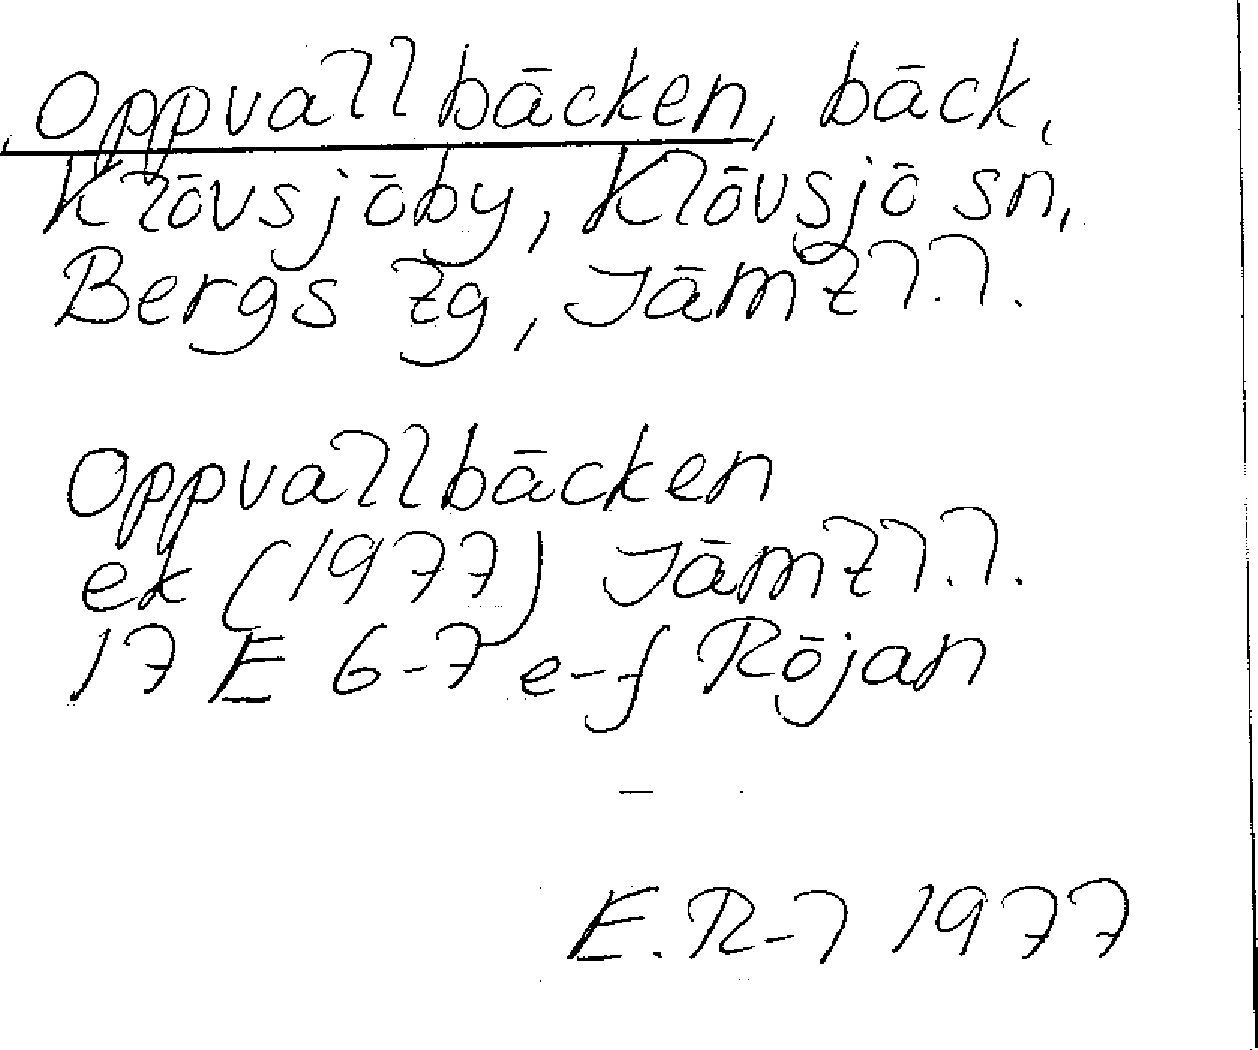 Oppvallbäcken, bäck,
Klövsjöby, Klövsjö sn,
Bergs tg, Jämtl.l.
Oppvallbäcken
ek (1977) Jämtl.l.
17 E 6-7 e-f Röjan
E.R-l 1977